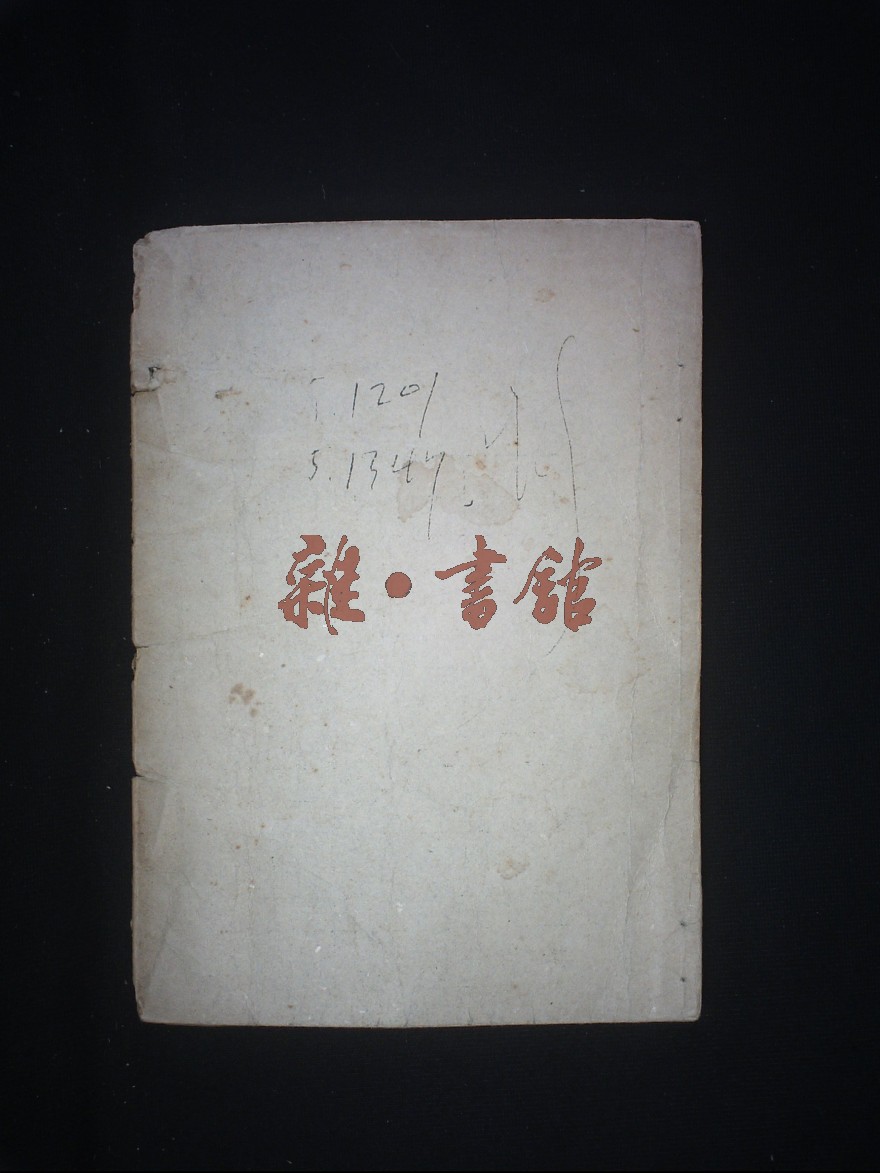 1.1201
5.1347
雜·書館